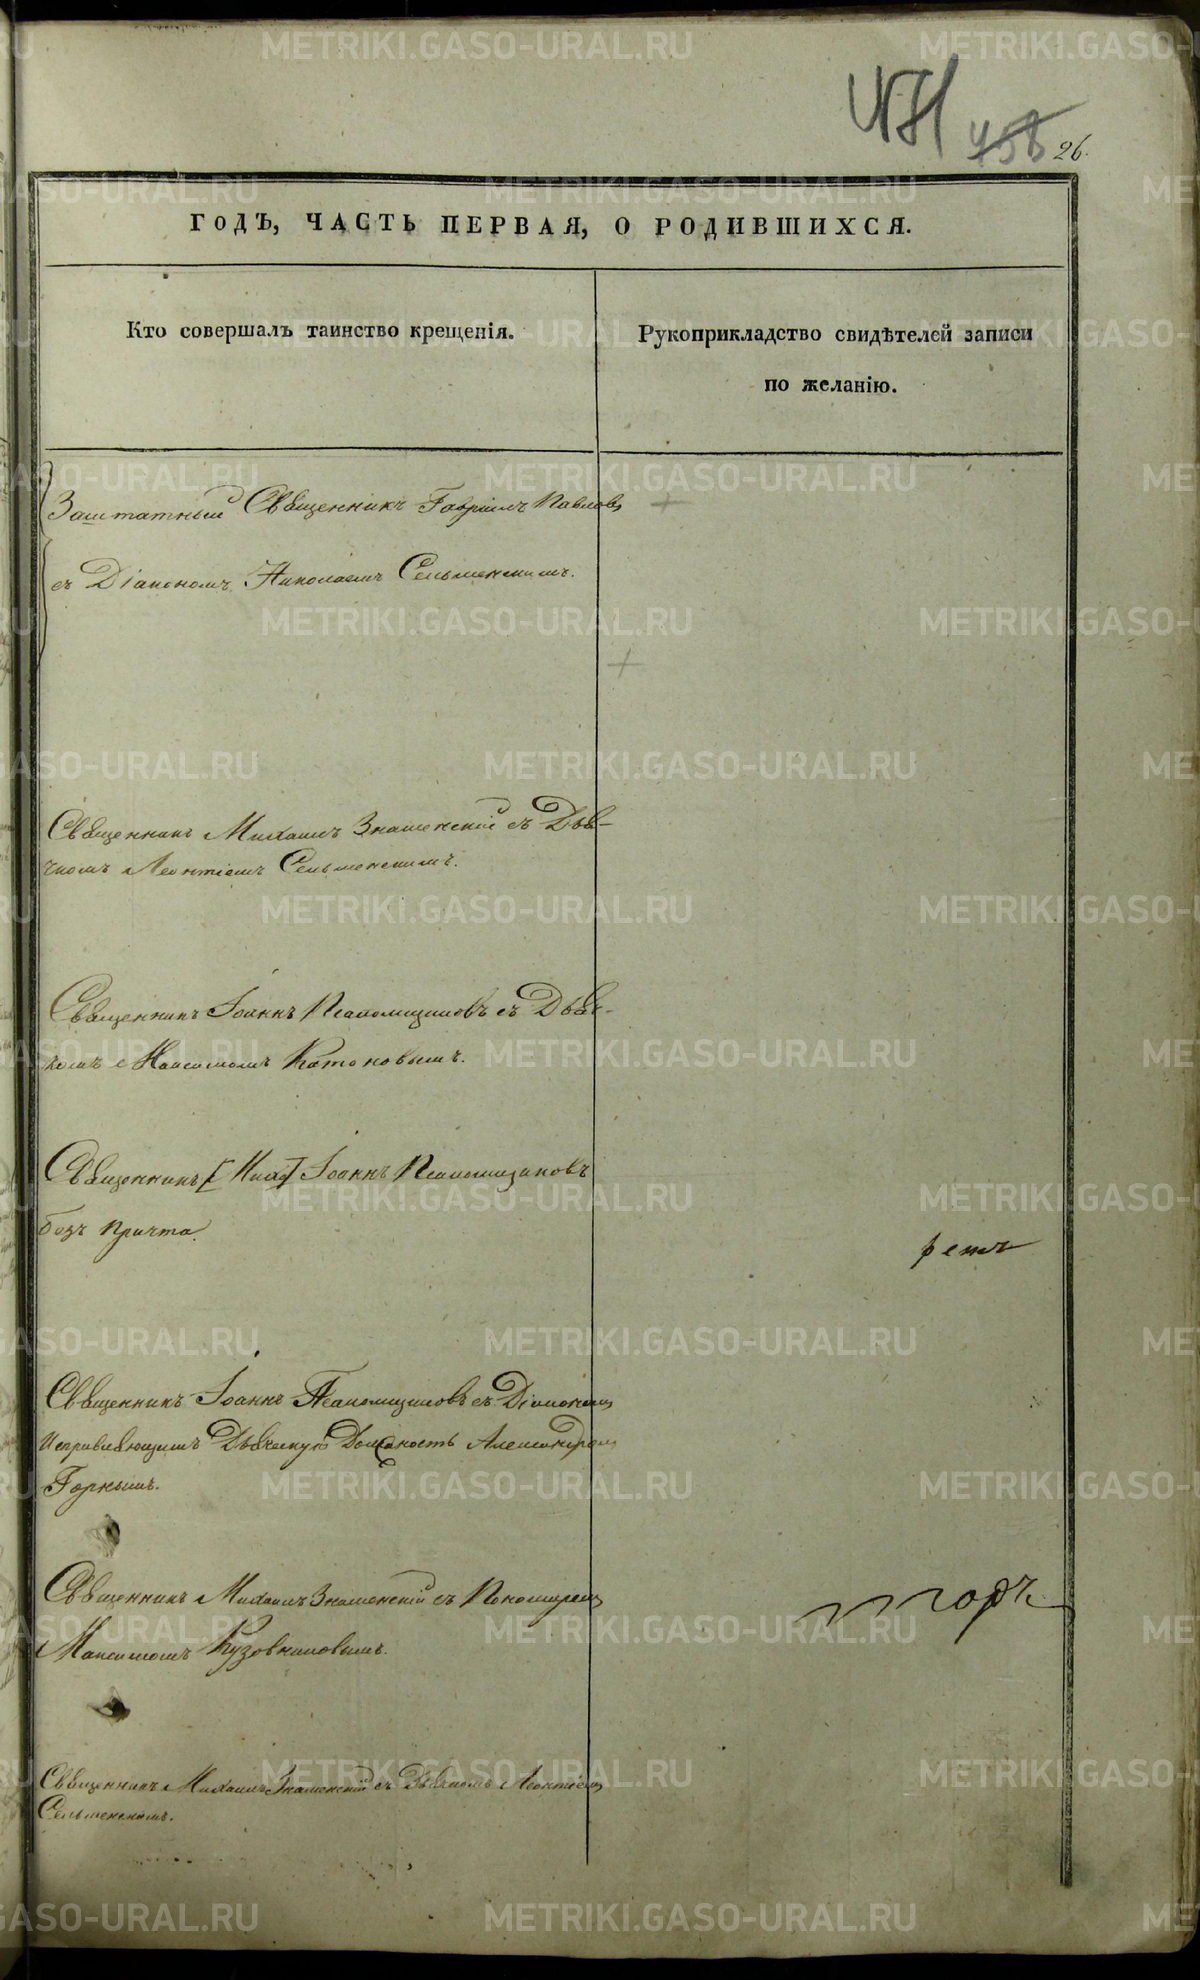 26.
ГОДЪ, ЧАСТЬ ПЕРВАЯ, О РОДИВШИХСЯ.
Кто совершалъ таинство крещенія.
Рукоприкладство свидѣтелей записи
по желанію.
Заштатный Священникъ Гавріилъ Павловъ
съ Діакономъ Николаемъ Сельменскимъ.
Священникъ Михаилъ Знаменскій съ Дьяч-
комъ Леонтіемъ Сельменскимъ.
Священникъ Іоаннъ Псаломщиковъ съ Дьяч-
комъ Максимомъ Катоновымъ.
Священникъ [Миха] Іоаннъ Псаломщиковъ
безъ Причта.
Священникъ Іоаннъ Псаломщиковъ съ Діакономъ
Исправляющимъ Дьяческую Должность Александромъ
Горнымъ.
Священникъ Михаилъ Знаменскій съ Пономаремъ
Максимомъ Кузовниковымъ.
Священникъ Михаилъ Знаменскій съ Дьячкомъ Леонтіемъ
Сельменскимъ.
METRIKI.GASO-URAL.RU